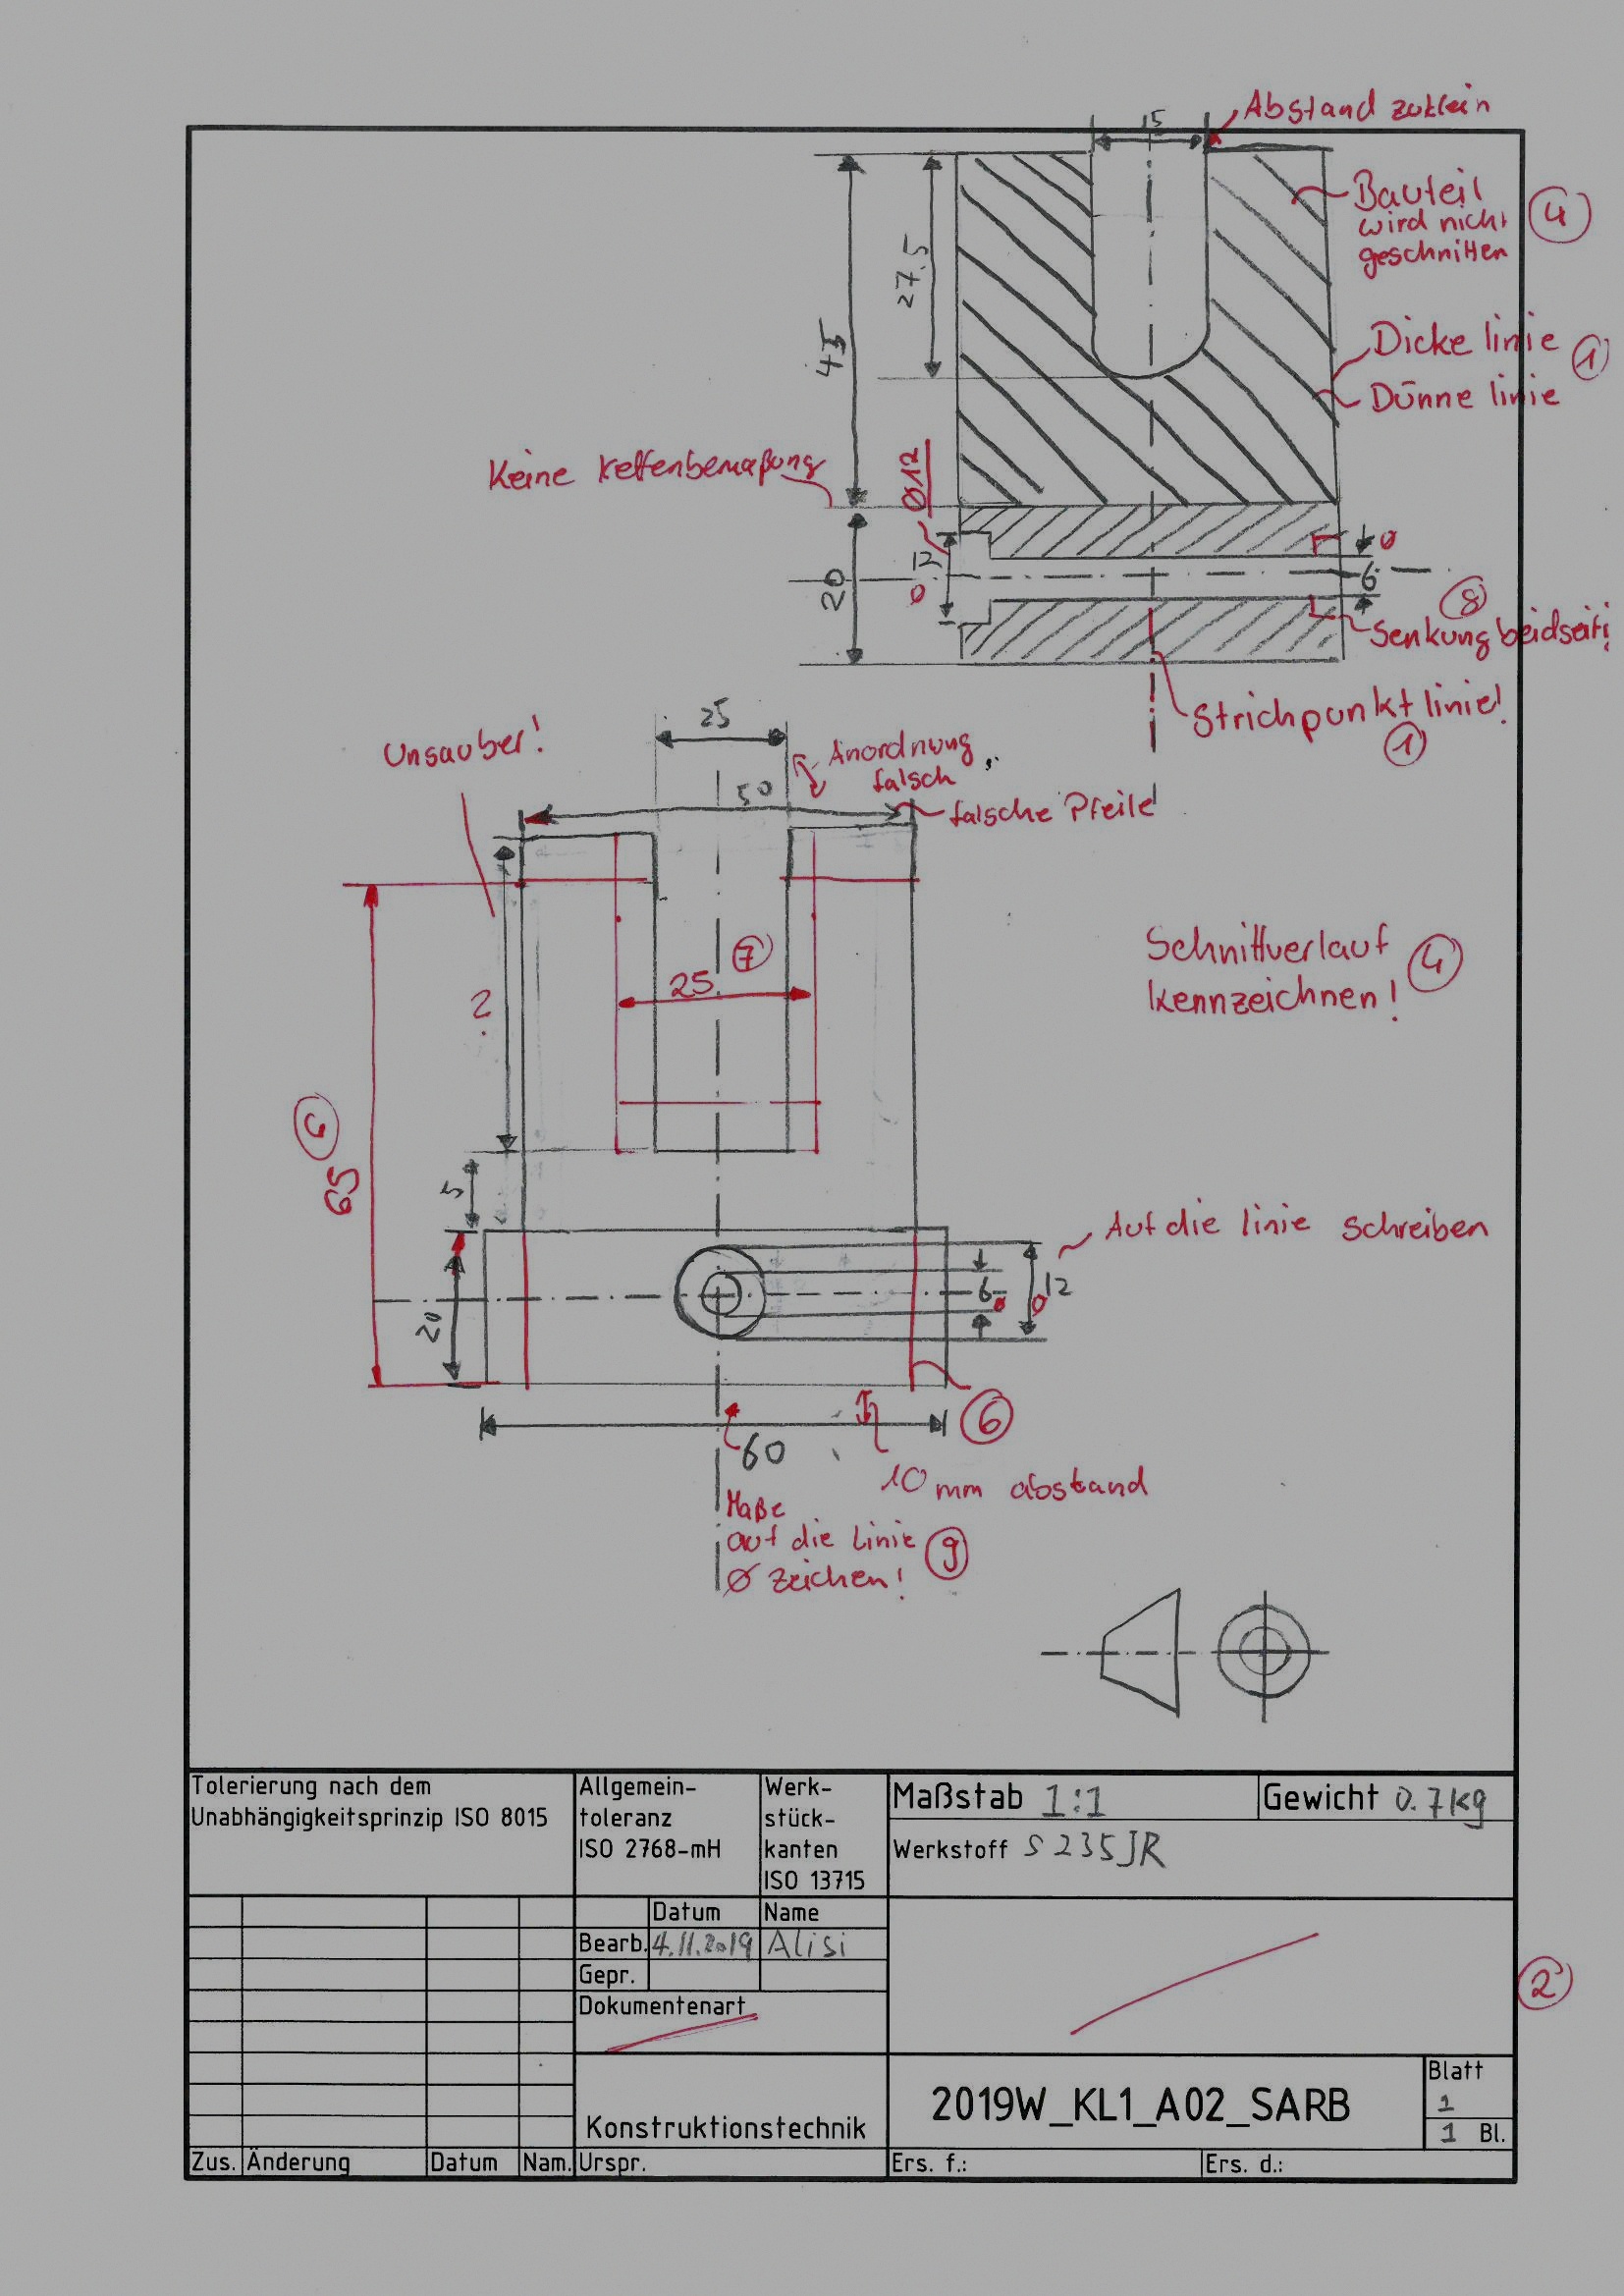 Abstand zuklein
15
Bauteil
wird nicht
geschnitten
4
27.5
45
Dicke linie
1
Dünne linie
Keine Kettenbemaßung
Ø12
12
Ø
20
6
Ø
8
Senkung beidseiti
Strichpunktlinie!
1
25
Unsauber!
Anordnung
falsch
50
falsche Pfeile!
25
7
?
Schnittverlauf
kennzeichnen!
4
6
65
5
Auf die linie schreiben
6
Ø
Ø
12
20
60
6
10 mm abstand
Maße
auf die Linie
Ø zeichen!
9
Tolerierung nach dem
Unabhängigkeitsprinzip ISO 8015
Allgemein-
toleranz
ISO 2768-mH
Werk-
stück-
kanten
ISO 13715
Maßstab 1:1
Gewicht 0.7kg
Werkstoff S235JR
Datum Name
Bearb. 4.11.2019 Alisi
Gepr.
Dokumentenart
2
Konstruktionstechnik
2019W_KL1_A02_SARB
Blatt
1
1 Bl.
Zus. Änderung Datum Nam. Urspr. Ers. f.: Ers. d.: